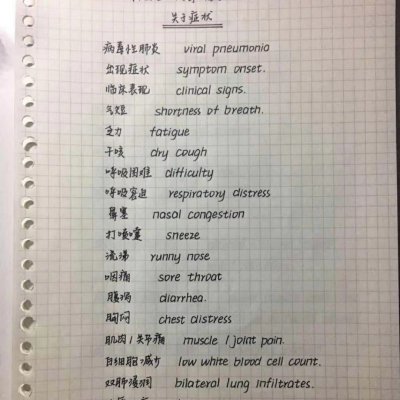 关于症状
病毒性肺炎 viral pneumonia
出现症状 symptom onset.
临床表现 clinical signs.
气短 shortness of breath.
乏力 fatigue
干咳 dry cough
呼吸困难 difficulty
呼吸窘迫 respiratory distress
鼻塞 nasal congestion
打喷嚏 sneeze
流涕 runny nose
咽痛 sore throat
腹泻 diarrhea.
胸闷 chest distress
肌肉/关节痛 muscle/joint pain.
白细胞减少 low white blood cell count.
双肺浸润 bilateral lung infiltrates.